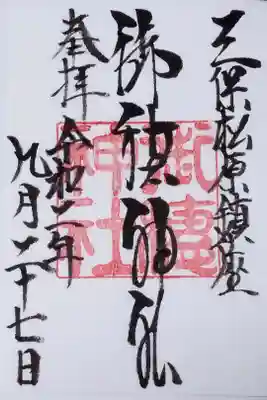 三保松原鎮座
御穂神社
奉拝 令和二年
九月二十七日